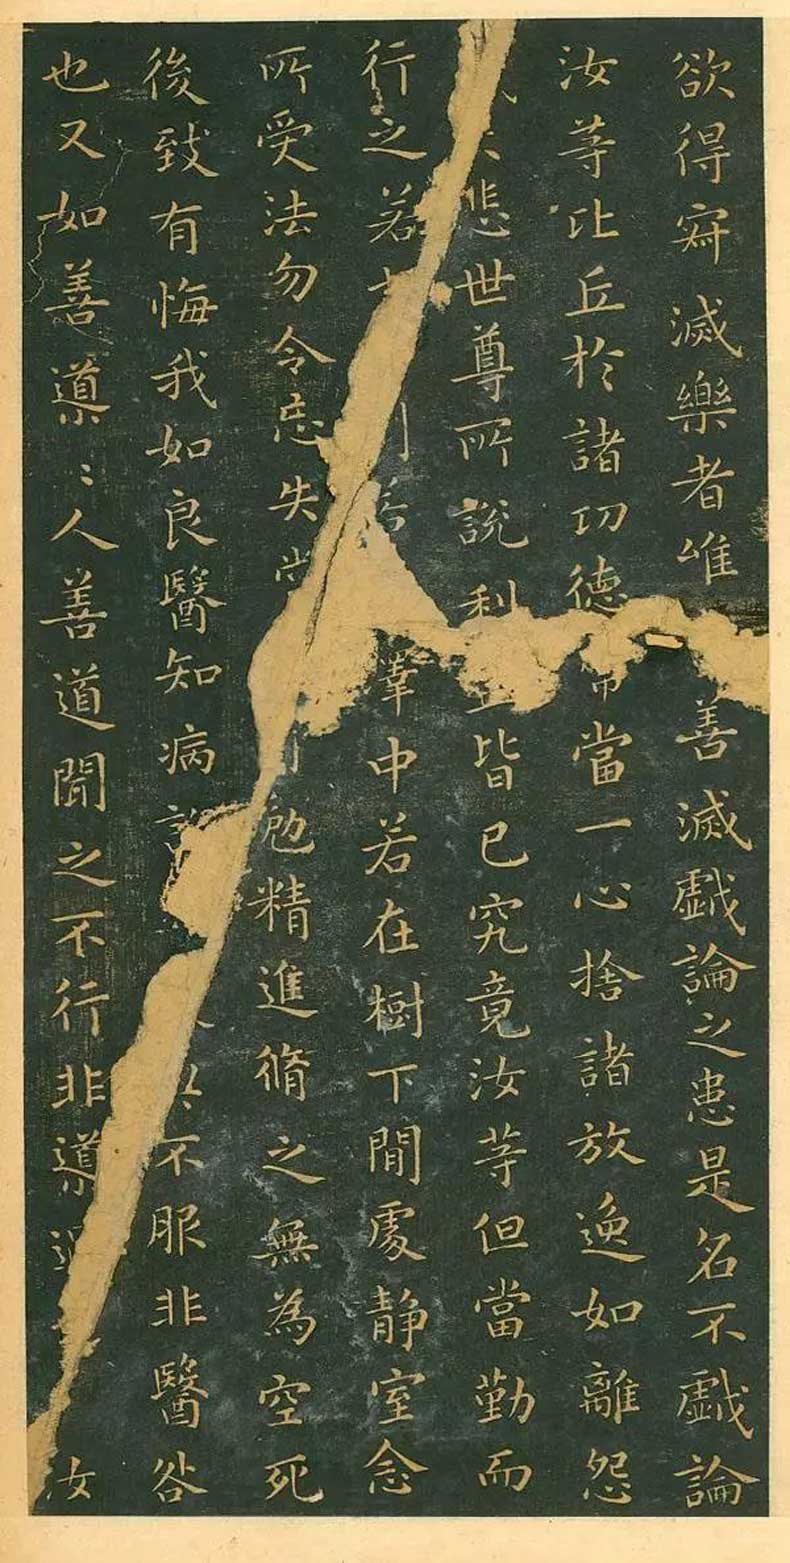 欲得寂滅樂者唯善滅戲論之患是名不戲論
汝等比丘於諸功德常當一心捨諸放逸如離怨
悲世尊所說利皆已究竟汝等但當勤而
行之若中若在樹下閒處静室念
所受法勿令忘失勉精進脩之無為空死
後致有悔我如良醫知病不服非醫咎
也又如善導〻人善道聞之不行非導汝